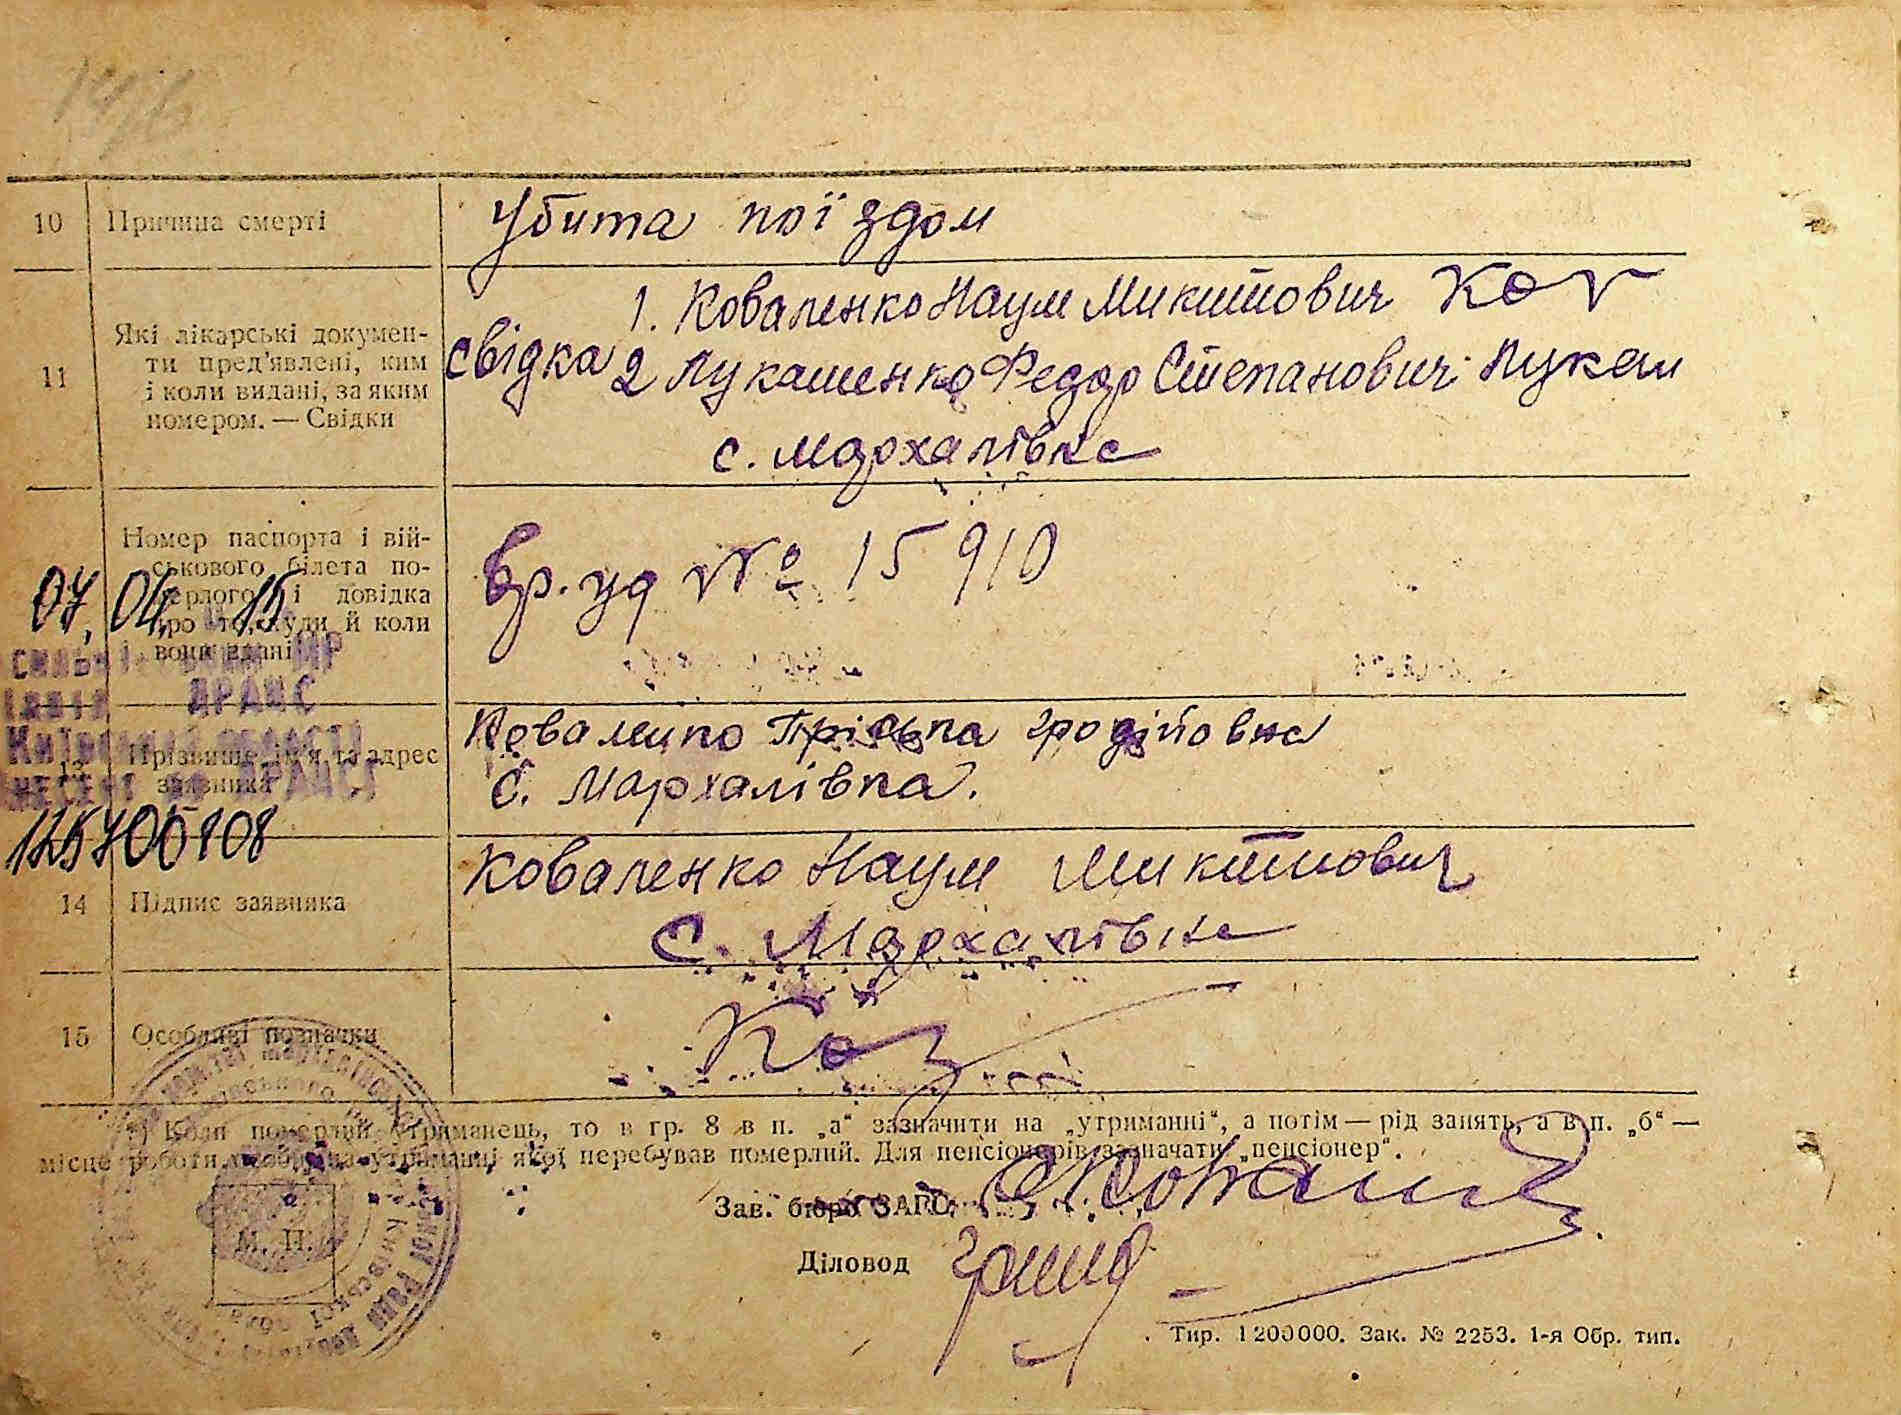 10 Причина смерті
Убита поїздом
11 Які лікарські докумен-
ти пред'явлені, ким
і коли видані, за яким
номером. — Свідки
1. Коваленко Наум Микитович Ков
свідка 2 Лукашенко Федор Степанович Лукаш
с. Мархалівка
Номер паспорта і вій-
ськового білета по-
мерлого і довідка
про те, куди й коли
вони здані
Вр. уд № 15910
07, 04, 15
ДРАЦС
13 Прізвище, ім'я та адрес
заявника
Прісьпа
с. Мархалівка.
14 Підпис заявника
Коваленко Наум Микитович
с. Мархалівка
15 Особливі позначки
Ков
*) Коли померлий утриманець, то в гр. 8 в п. „а“ зазначити на „утриманні“, а потім — рід занять, а в п. „б“ —
місце роботи особи, на утриманні якої перебував померлий. Для пенсіонерів зазначати „пенсіонер“.
Зав. бюро ЗАГС
М. П.
Діловод
Тир. 1200000. Зак. № 2253. 1-я Обр. тип.